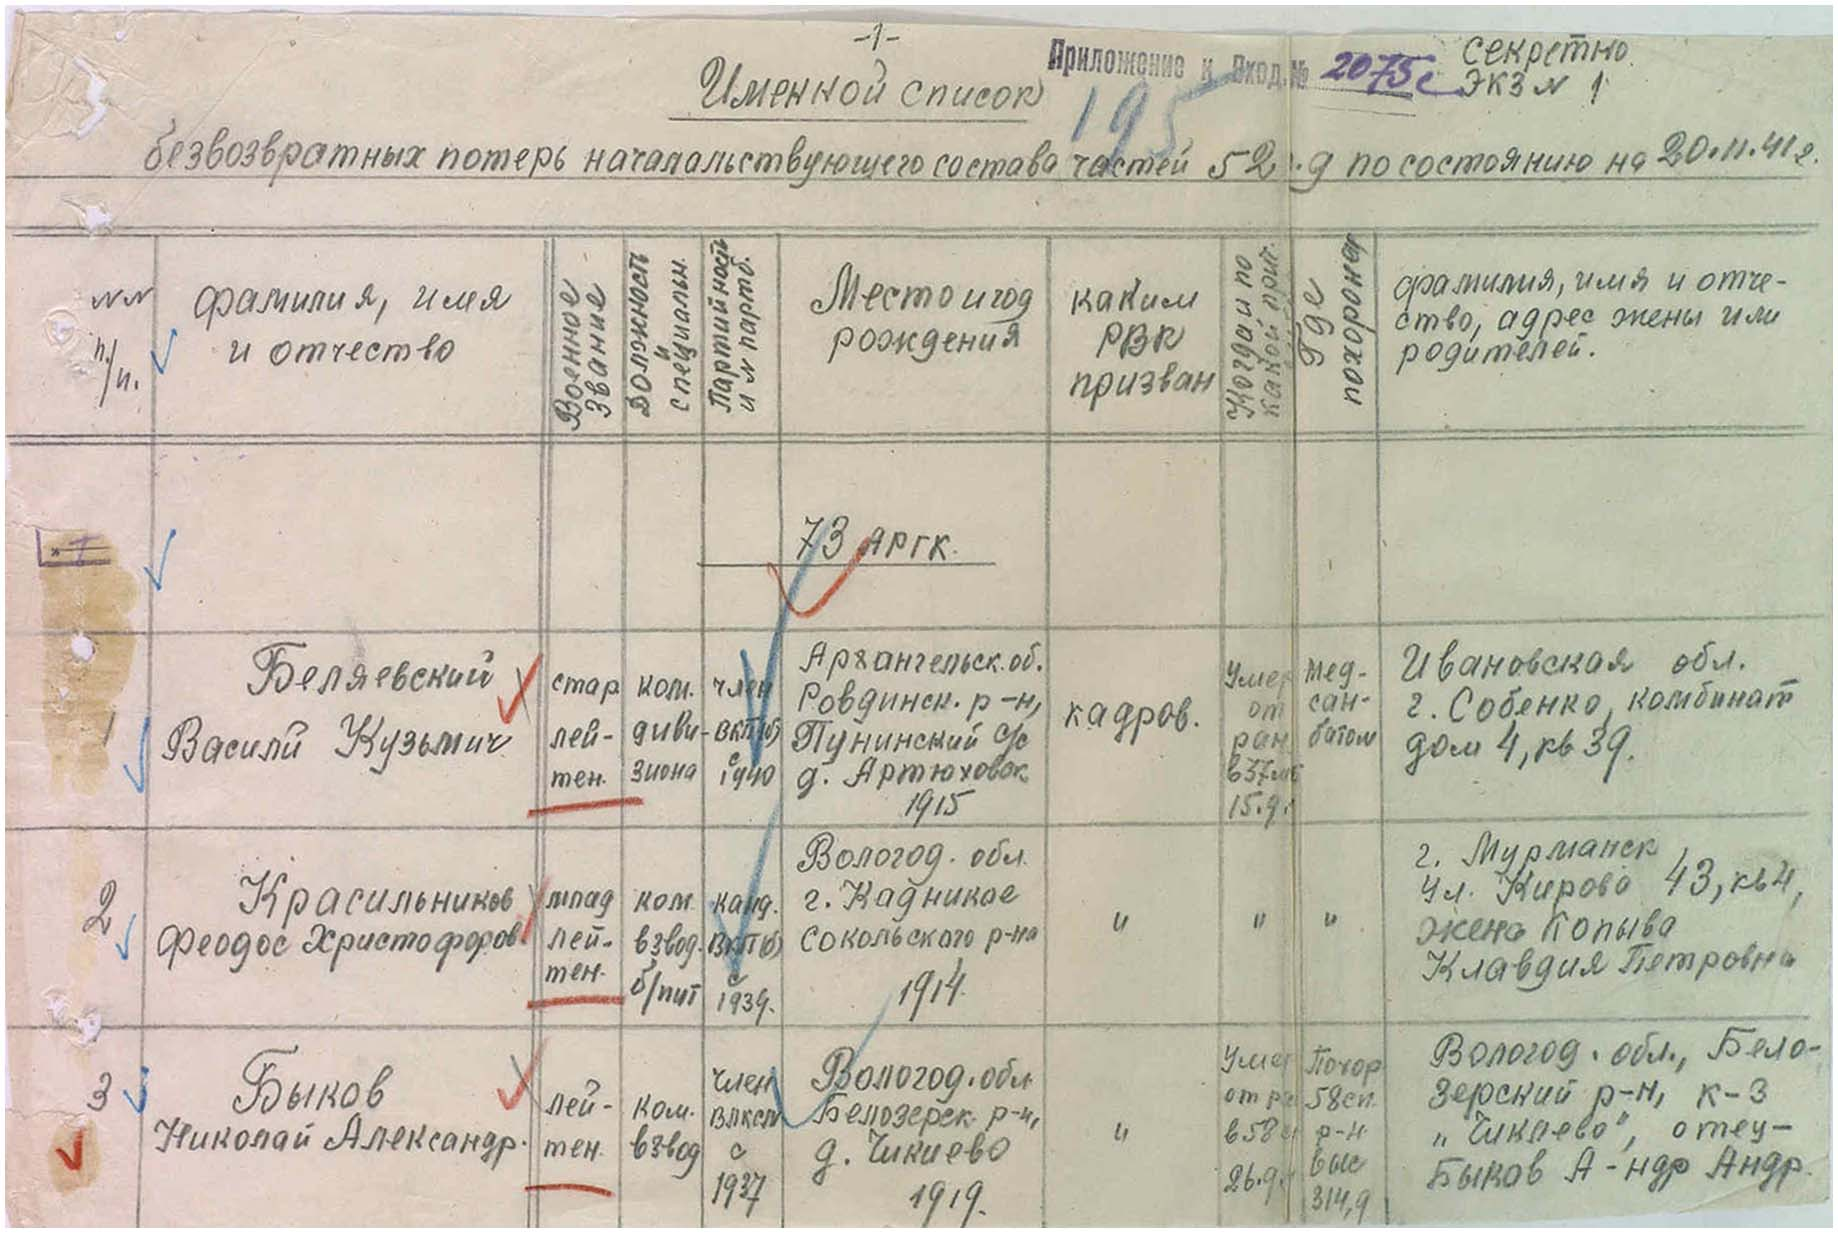 -1-
Приложение к Вход.№ 2075с
Секретно.
экз N 1
Именной список
195
безвозвратных потерь начальствующего состава частей 52 с.д по состоянию на 20.11.41 г.
NN п./п.
фамилия, имя
и отчество
Военное
звание
Должность
и
специальн.
Партийность
и N партб.
Место и год
рождения
каким
РВК
призван
Когда и по
какой прич.
Где
похоронен
фамилия, имя и отче-
ство, адрес жены или
родителей.
73 АРГК.
1
Беляевский
Василий Кузьмич
стар
лей-
тен.
ком.
диви-
зиона
член
ВКП(б)
с
1940
Архангельск. об.
Ровдинск. р-н,
Пунинский с/с
д. Артюховск
1915
кадров.
Умер
от
ран
15.9.
мед-
сан-
батом
Ивановская обл.
г. Собенко, комбинат
дом 4, кв 39.
2
Красильников
Феодос Христофоров.
млад
лей-
тен.
ком.
взвод.
б/пит
канд.
ВКП(б)
с
1939.
Вологод. обл.
г. Кадникое
Сокольского р-на
1914.
"
"
"
г. Мурманск
ул. Кирова 43, кв 4,
жена Копыва
Клавдия Петровна
3
Быков
Николай Александр.
лей-
тен.
ком.
взвод
член
ВЛКСМ
с
1937
Вологод. обл
Белозерск. р-н,
д. Чикиево
1919.
"
Умер
от ра
в 58
26.9.
Похор
58 сп.
р-н
выс
314,9
Вологод. обл., Бело-
зерский р-н, к-з
„Чикаево", отец-
Быков А-ндр Андр.